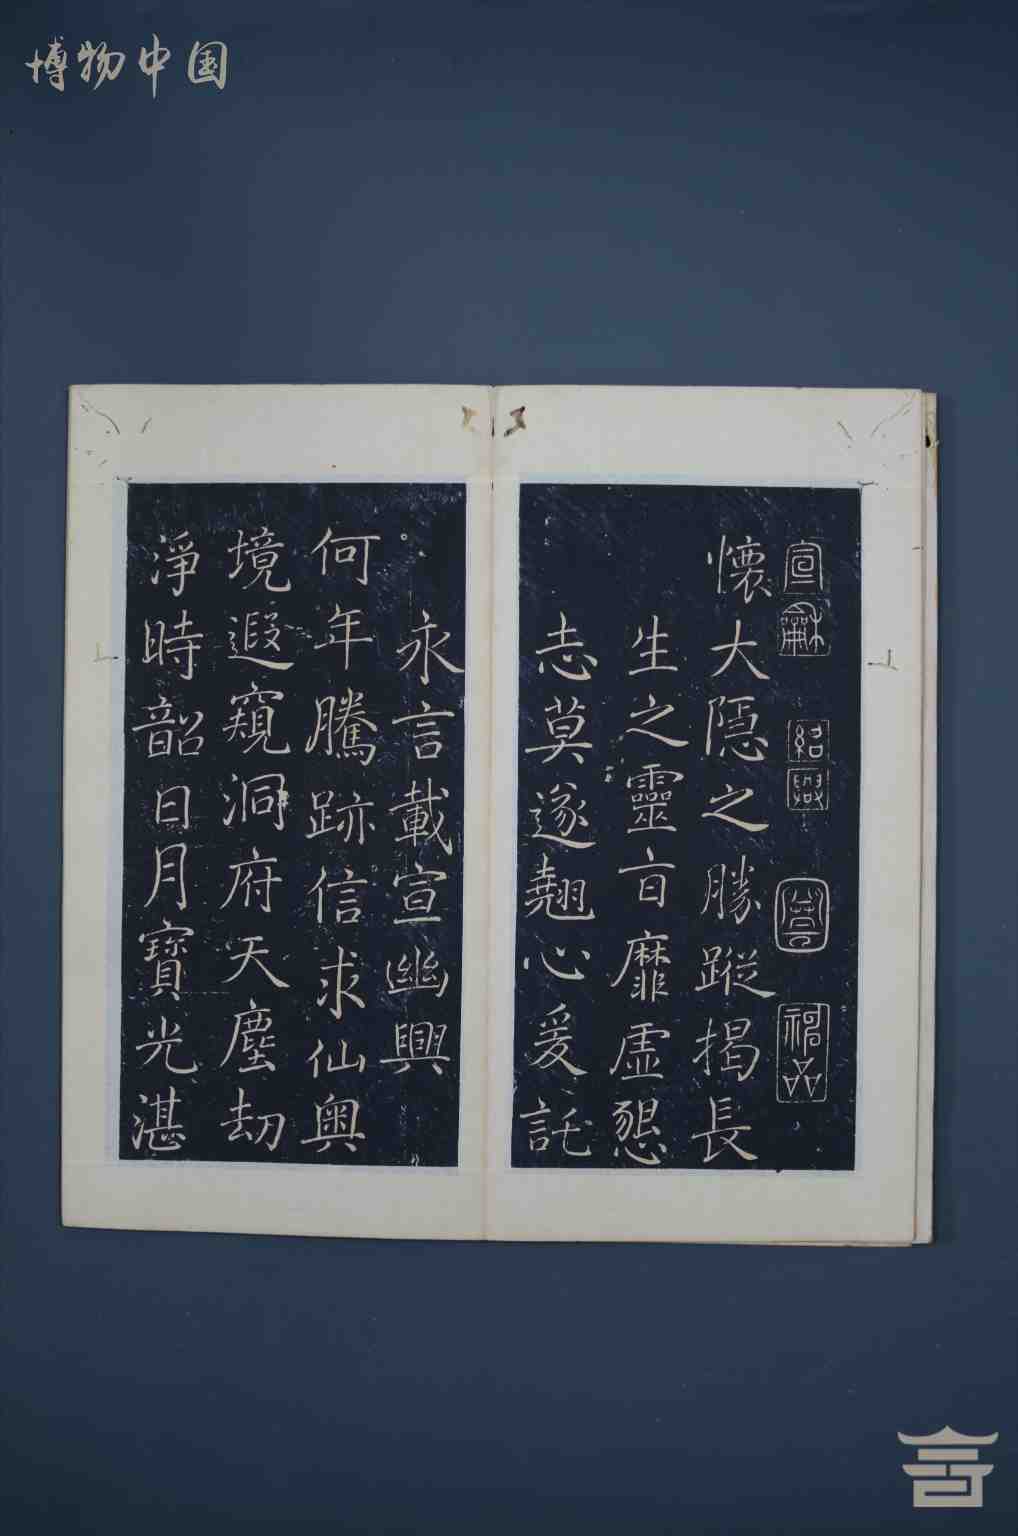 博物中国
宣龢
紹興
懷大隱之勝蹤揭長
生之靈㫖靡虛懇
志莫遂翹心爰託
永言載宣幽興
何年騰跡信求仙奧
境遐窺洞府天塵劫
淨時韶日月寶光湛